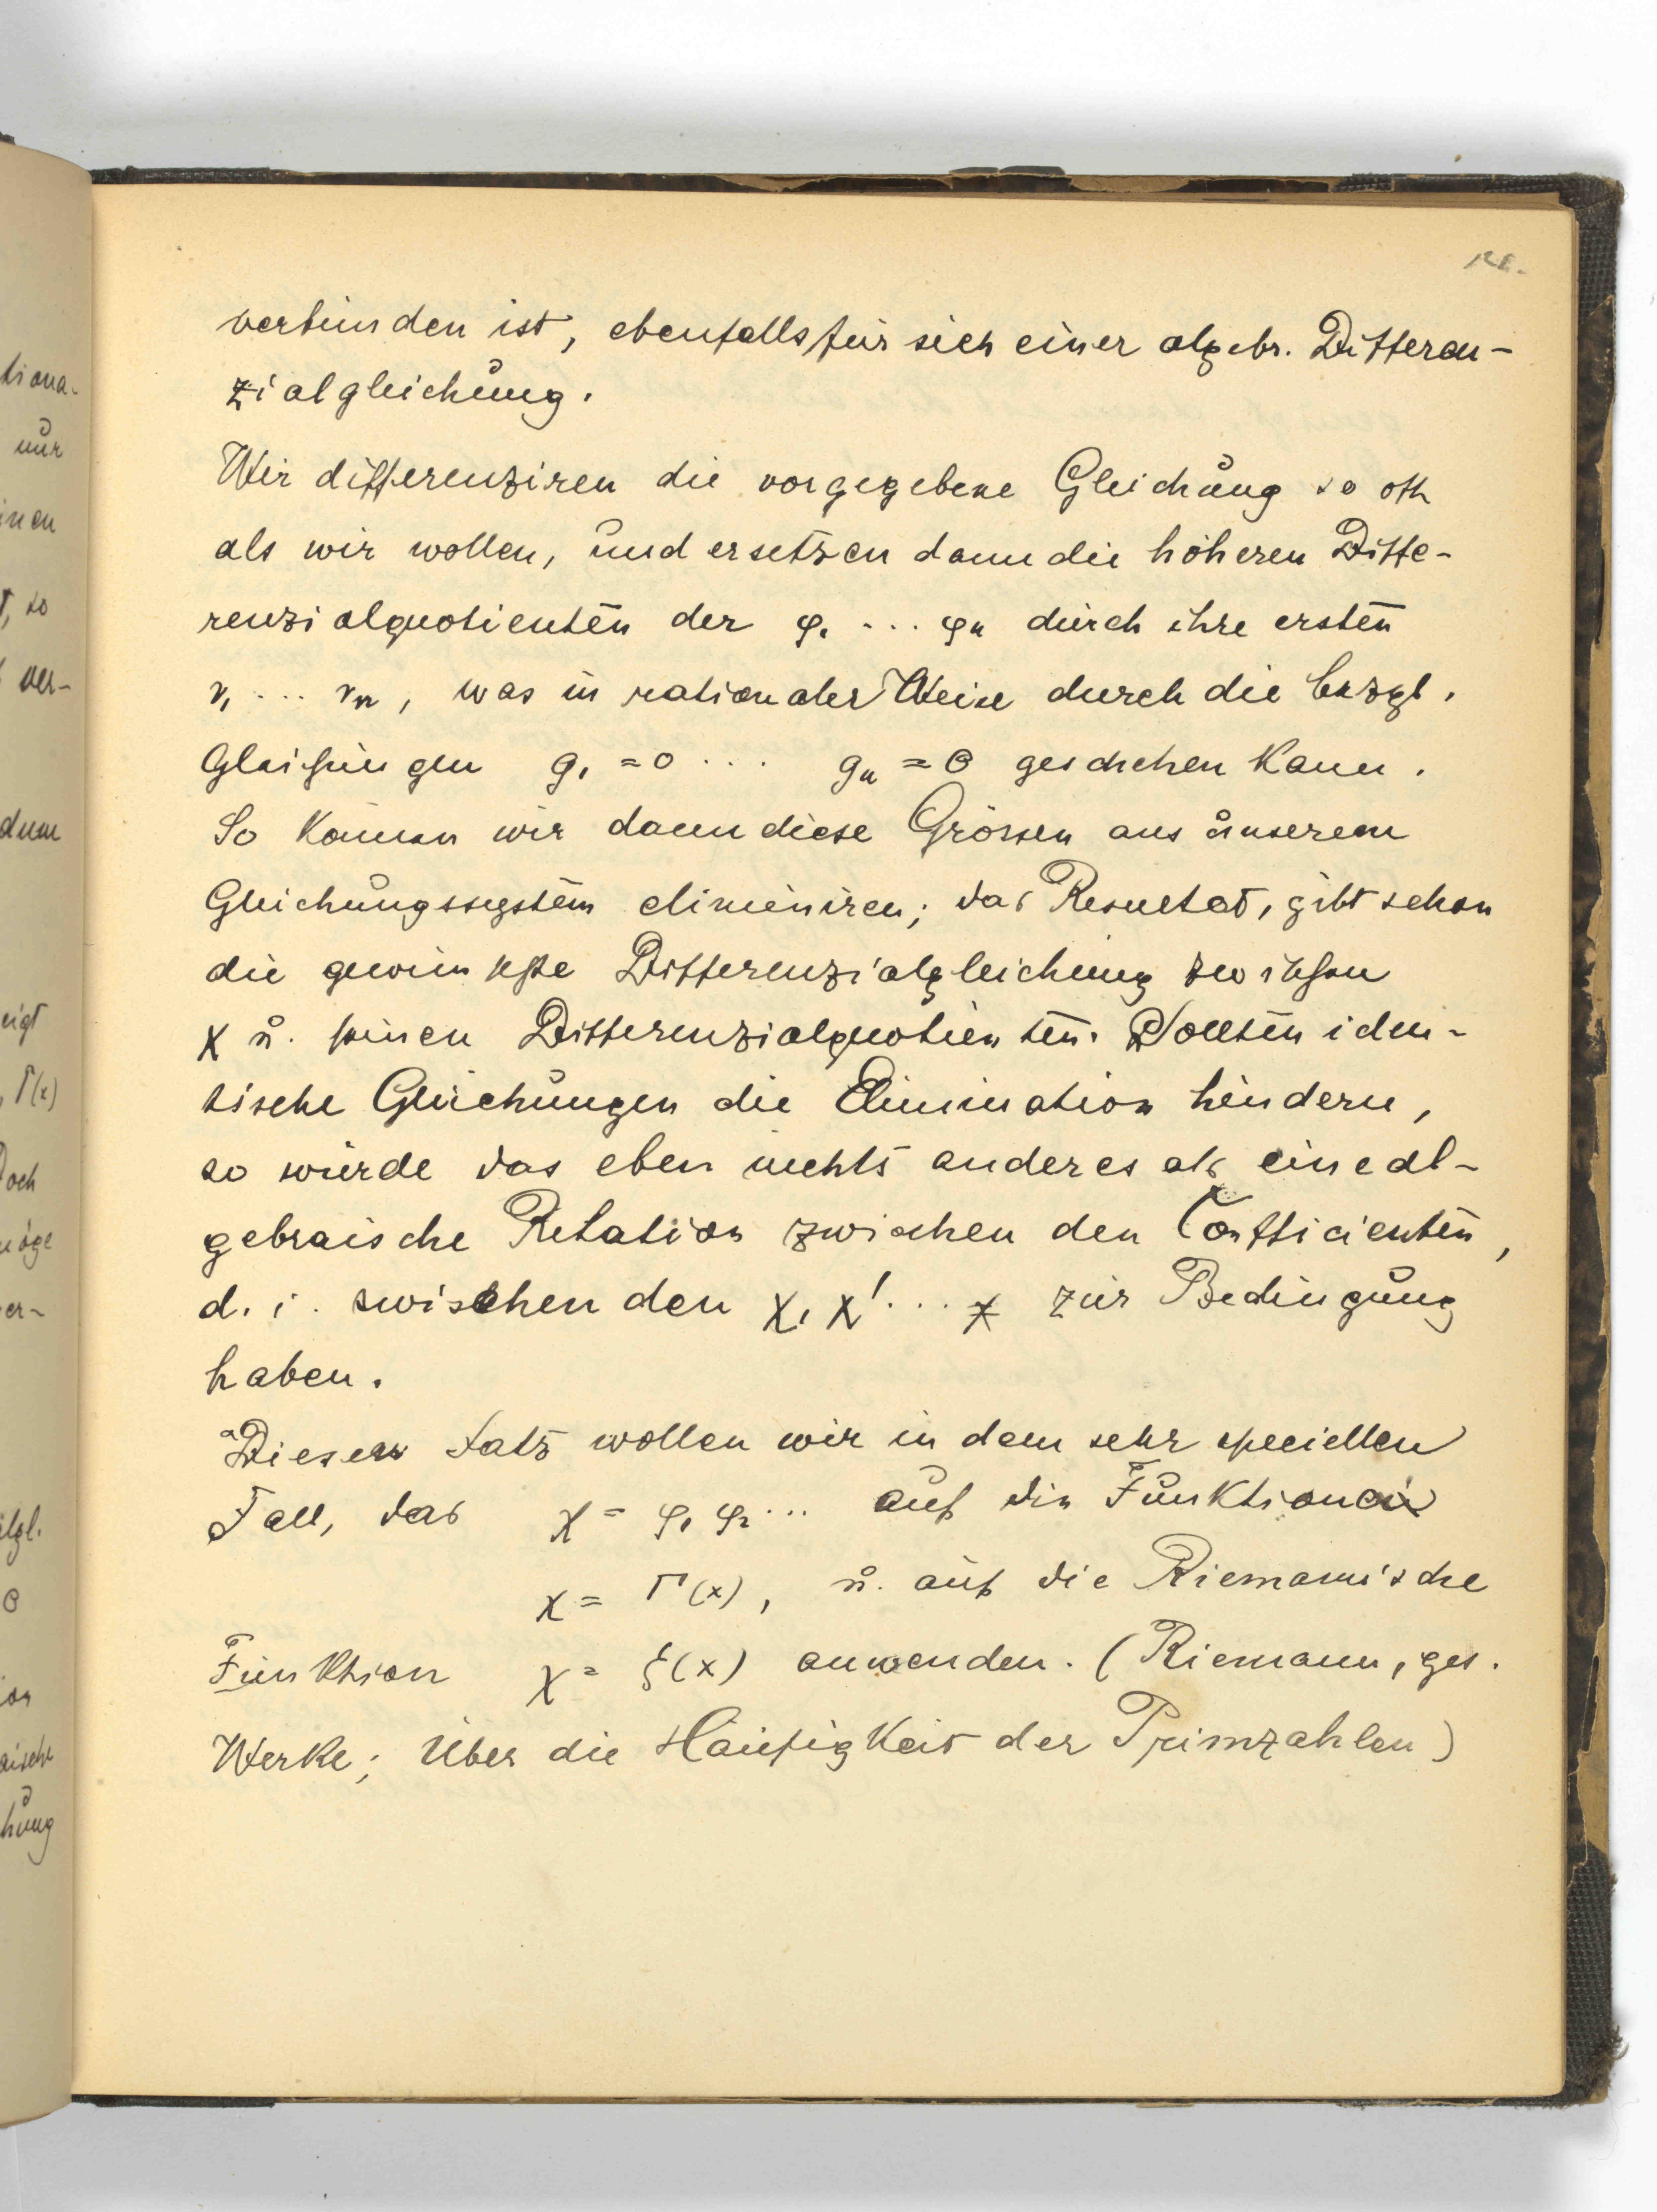 verbunden ist, ebenfalls für sich einer algebr. Differen-
zialgleichung.
Wir differenziren die vorgegebene Gleichung so oft
als wir wollen, und ersetzen dann die höheren Diffe-
renzialquotienten der φ₁ ... φₙ durch ihre ersten
r₁ ... rₙ, was in rationaler Weise durch die bezgl.
Gleichungen g₁ = 0 ... gₙ = 0 geschehen kann.
So können wir dann diese Grössen aus unserem
Gleichungssystem eliminiren; das Resultat, gibt schon
die gewünschte Differenzialgleichung zwischen
χ u. seinen Differenzialquotienten. Sollten iden-
tische Gleichungen die Elimination hindern,
so würde das eben nichts anderes als eine al-
gebraische Relation zwischen den Coefficienten,
d. i. zwischen den χ, χ' ... x zur Bedingung
haben.
Diesen Satz wollen wir in dem sehr speciellen
Fall, das χ = φ₁ φ₂ ... auf die Funktionen
χ = Γ(x), u. auf die Riemannische
Funktion χ = ξ(x) anwenden. (Riemann, ges.
Werke; Über die Häufigkeit der Primzahlen)
tiona-
nur
inen
t, so
ver-
dum
eigt
, Γ(x)
och
möge
er-
0
ion
aische
hung